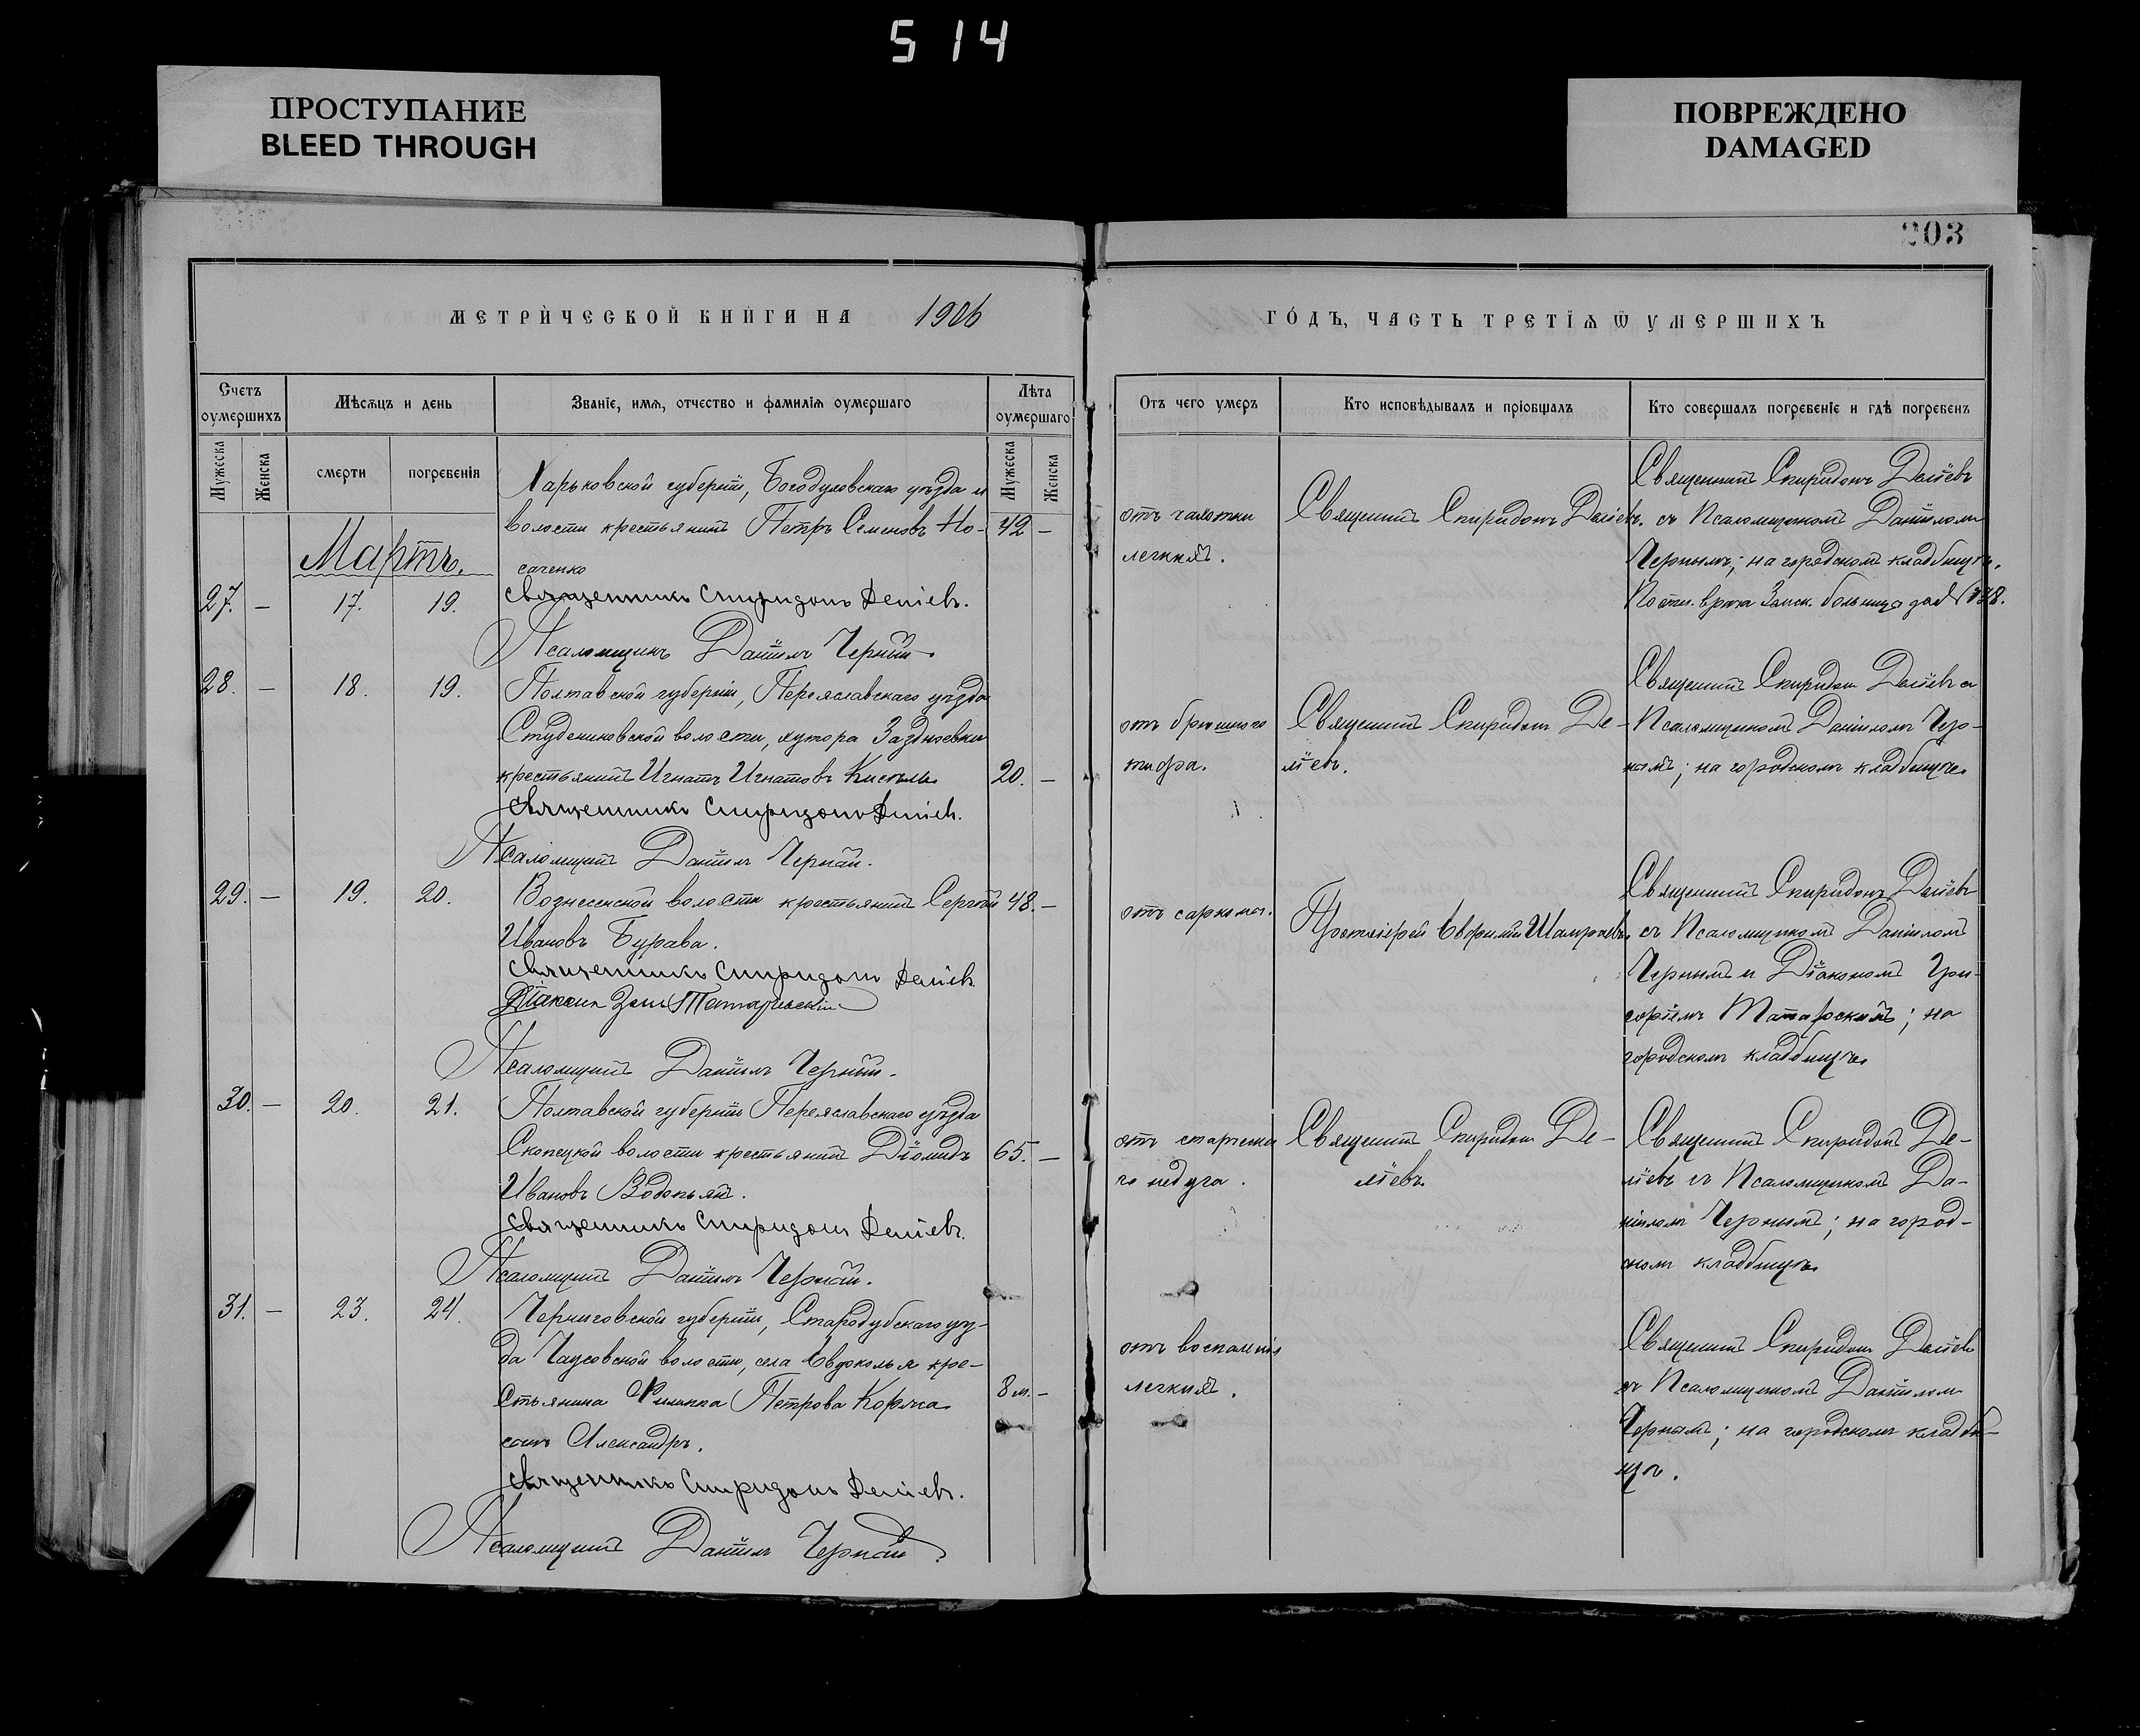 514
ПРОСТУПАНИЕ
BLEED THROUGH
ПОВРЕЖДЕНО
DAMAGED
203
МЕТРИЧЕСКОЙ КНИГИ НА 1906
ГОДЪ, ЧАСТЬ ТРЕТІѦ Ѿ УМЕРШИХЪ
Счетъ оумершихъ
Мѣсѧцъ и день
Званіе, имѧ, отчество и фамиліѧ оумершаго
Лѣта оумершаго
Отъ чего умеръ
Кто исповѣдывалъ и пріобщалъ
Кто совершалъ погребеніе и гдѣ погребенъ
Мужеска
Женска
смерти
погребенія
Мужеска
Женска
Мартъ.
27. — 17. 19.
Харьковской губерніи, Богодуховскаго уѣзда и
волости крестьянинъ Петръ Семеновъ Но- 42 —
саченко
Священникъ Спиридонъ Деліевъ.
Псаломщикъ Даніилъ Черный.
отъ чахотки
легкихъ.
Священникъ Спиридонъ Деліевъ.
Священникъ Спиридонъ Деліевъ
съ Псаломщикомъ Даніиломъ
Чернымъ; на городскомъ кладбищѣ.
врача Земск. больницы за № 128.
28. — 18. 19.
Полтавской губерніи, Переяславскаго уѣзда
Студениковской волости, хутора
крестьянинъ Игнатъ Игнатовъ Кисель 20. —
Священникъ Спиридонъ Деліевъ.
Псаломщикъ Даніилъ Черный.
отъ брюшного
тифа.
Священникъ Спиридонъ Де-
ліевъ.
Священникъ Спиридонъ Деліевъ съ
Псаломщикомъ Даніиломъ Чер-
нымъ; на городскомъ кладбищѣ.
29. — 19. 20.
Вознесенской волости крестьянинъ Сергѣй 48. —
Ивановъ Бурава.
Священникъ Спиридонъ Деліевъ
Діаконъ Татарскій
Псаломщикъ Даніилъ Черный.
отъ саркомы.
Протоіерей Евфимій
Священникъ Спиридонъ Деліевъ
съ Псаломщикомъ Даніиломъ
Чернымъ и Діакономъ Гри-
горіемъ Татарскимъ; на
городскомъ кладбищѣ.
30. — 20. 21.
Полтавской губерніи Переяславскаго уѣзда
Скопецкой волости крестьянинъ Діомидъ 65. —
Ивановъ Водопьянъ.
Священникъ Спиридонъ Деліевъ.
Псаломщикъ Даніилъ Черный.
отъ старческа
го недуга.
Священникъ Спиридонъ Де-
ліевъ.
Священникъ Спиридонъ Де-
ліевъ съ Псаломщикомъ Да-
ніиломъ Чернымъ; на город-
скомъ кладбищѣ.
31. — 23. 24.
Черниговской губерніи, Стародубскаго уѣз-
да Чаусовской волости, села Евдоколья кре-
стьянина Филиппа Петрова Коряка 8 м. —
сынъ Александръ.
Священникъ Спиридонъ Деліевъ.
Псаломщикъ Даніилъ Черный.
отъ воспаленія
легкихъ.
Священникъ Спиридонъ Деліевъ
съ Псаломщикомъ Даніиломъ
Чернымъ; на городскомъ кладби-
щѣ.